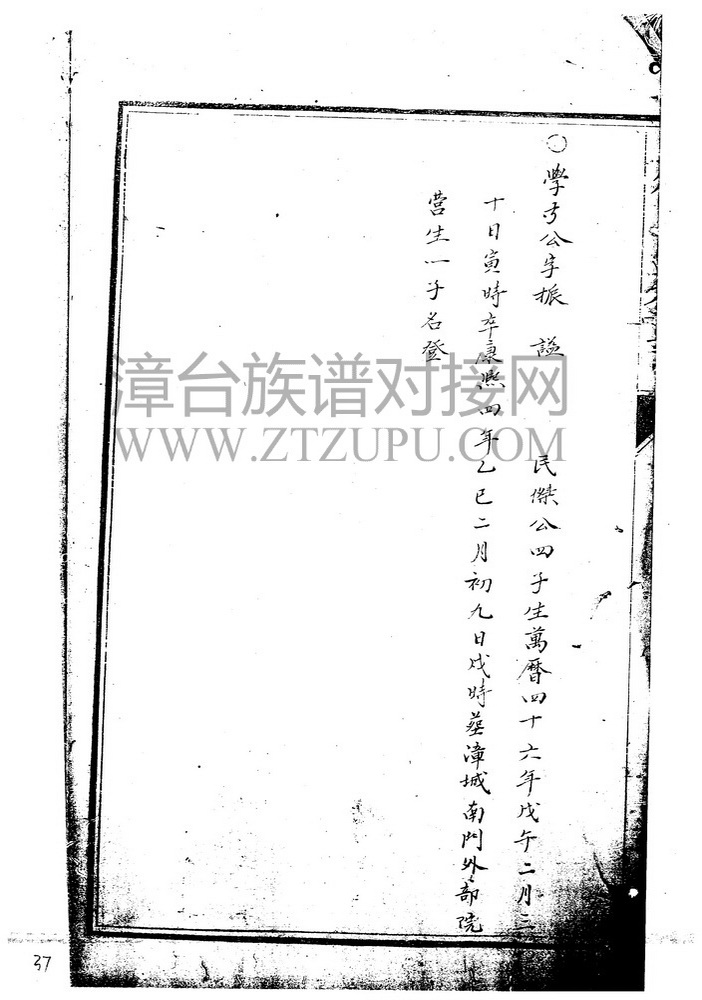 ○學才公字振謙 民傑公四子生萬曆四十六年戊午二月三
十日寅時卒康熙四年乙巳二月初九日戌時葬漳城南門外部院
营生一子名登
漳台族谱对接网
WWW.ZTZUPU.COM
37